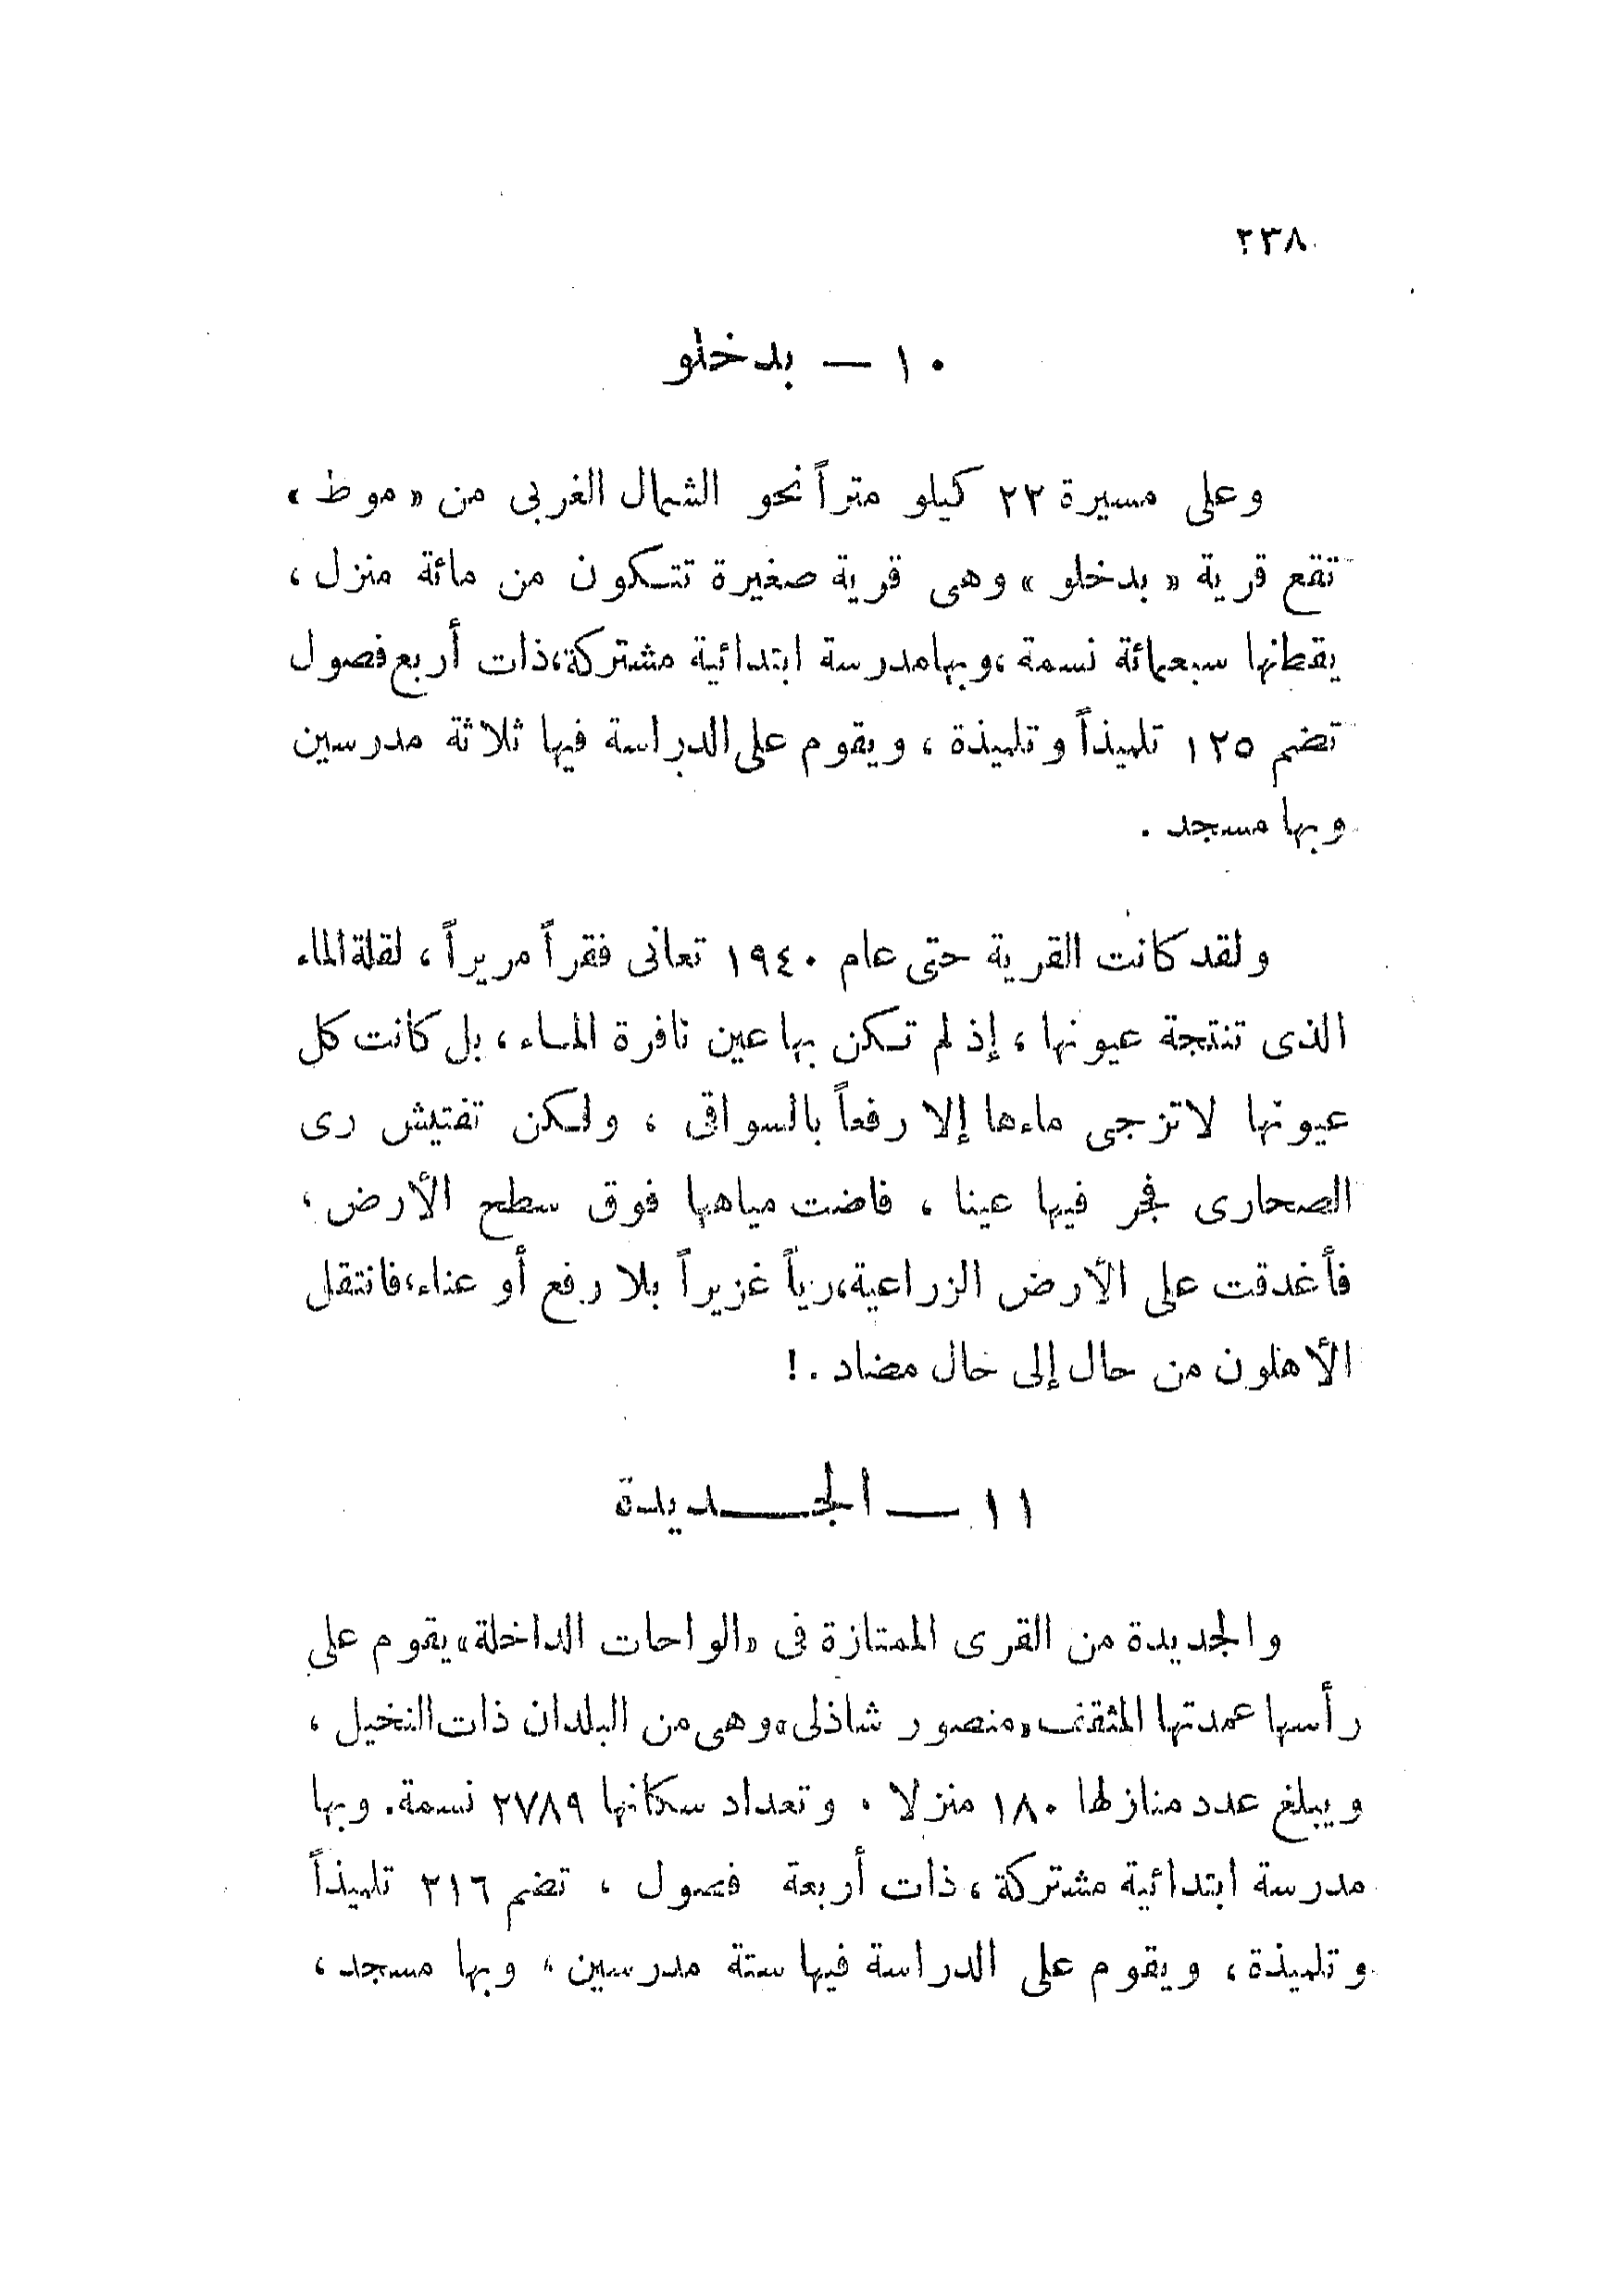 ٢٣٨
١٠ — بدخلو
وعلى مسيرة ٢٢ كيلو متراً نحو الشمال الغربى من «موط»
تقع قرية «بدخلو» وهى قرية صغيرة تتكون من مائة منزل،
يقطنها سبعمائة نسمة، وبها مدرسة ابتدائية مشتركة، ذات أربع فصول
تضم ١٢٥ تلميذاً وتلميذة، ويقوم على الدراسة فيها ثلاثة مدرسين
وبها مسجد.
ولقد كانت القرية حتى عام ١٩٤٠ تعانى فقراً مريراً، لقلة الماء
الذى تنتجة عيونها، إذ لم تكن بها عين نافرة الماء، بل كانت كل
عيونها لا تزجى ماءها إلا رفعاً بالسواقى، ولكن تفتيش رى
الصحارى فجر فيها عينا، فاضت مياهها فوق سطح الأرض،
فأغدقت على الأرض الزراعية، رياً غزيراً بلا رفع أو عناء، فانتقل
الأهلون من حال إلى حال مضاد.!
١١ — الجديدة
والجديدة من القرى الممتازة فى «الواحات الداخلة» يقوم على
رأسها عمدتها المثقف «منصور شاذلى» وهى من البلدان ذات النخيل،
ويبلغ عدد منازلها ١٨٠ منزلا. وتعداد سكانها ٢٧٨٩ نسمة. وبها
مدرسة ابتدائية مشتركة، ذات أربعة فصول، تضم ٢١٦ تلميذاً
وتلميذة، ويقوم على الدراسة فيها ستة مدرسين، وبها مسجد،